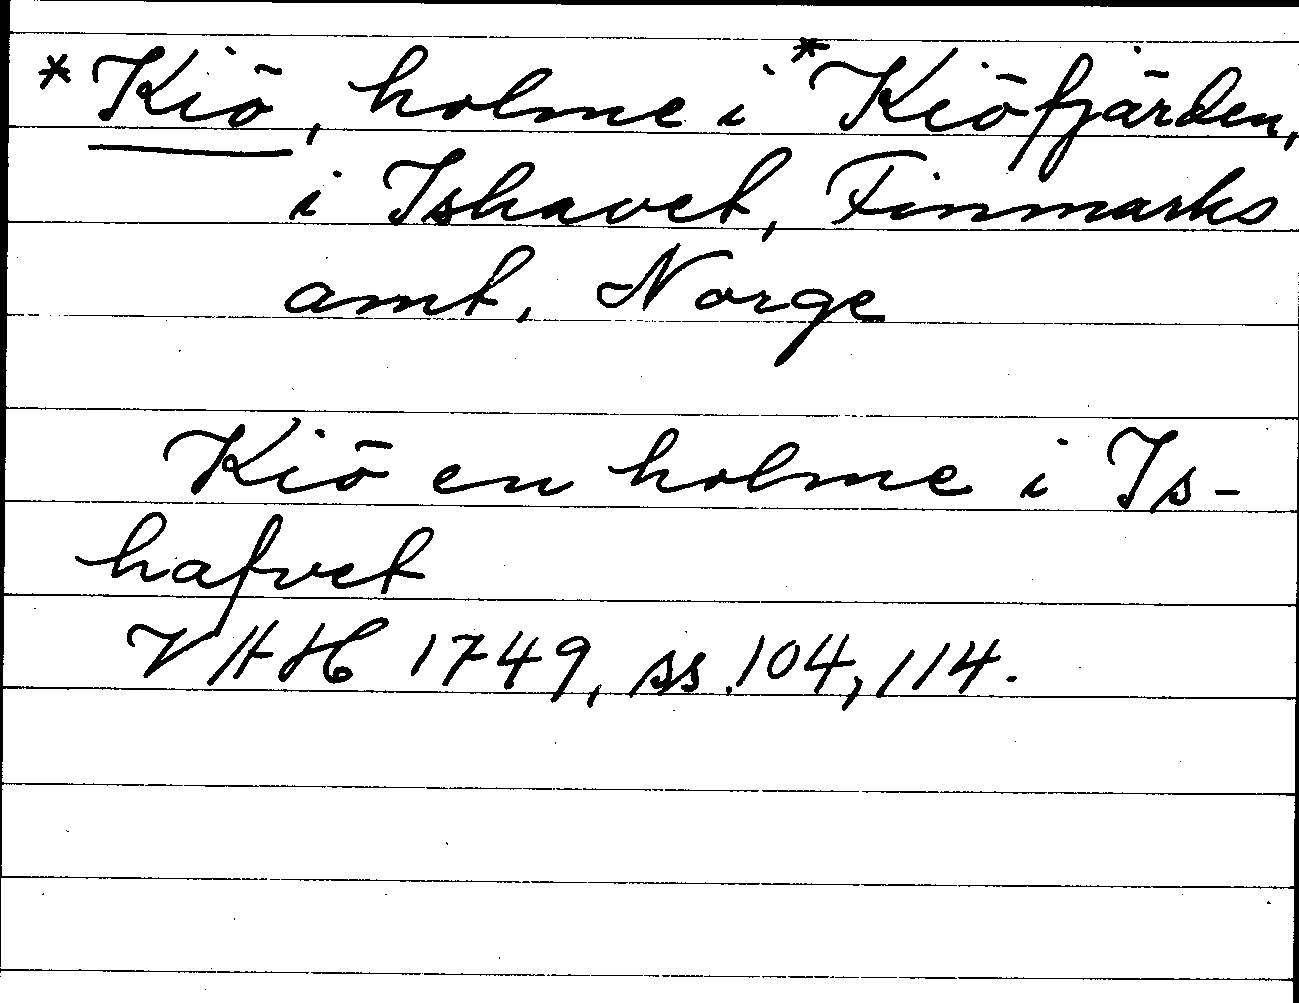 *Kiö, holme i *Kiöfjärden,
i Ishavet, Finmarks
amt, Norge
Kiö en holme i Is-
hafvet
VAH 1749, ss. 104, 114.